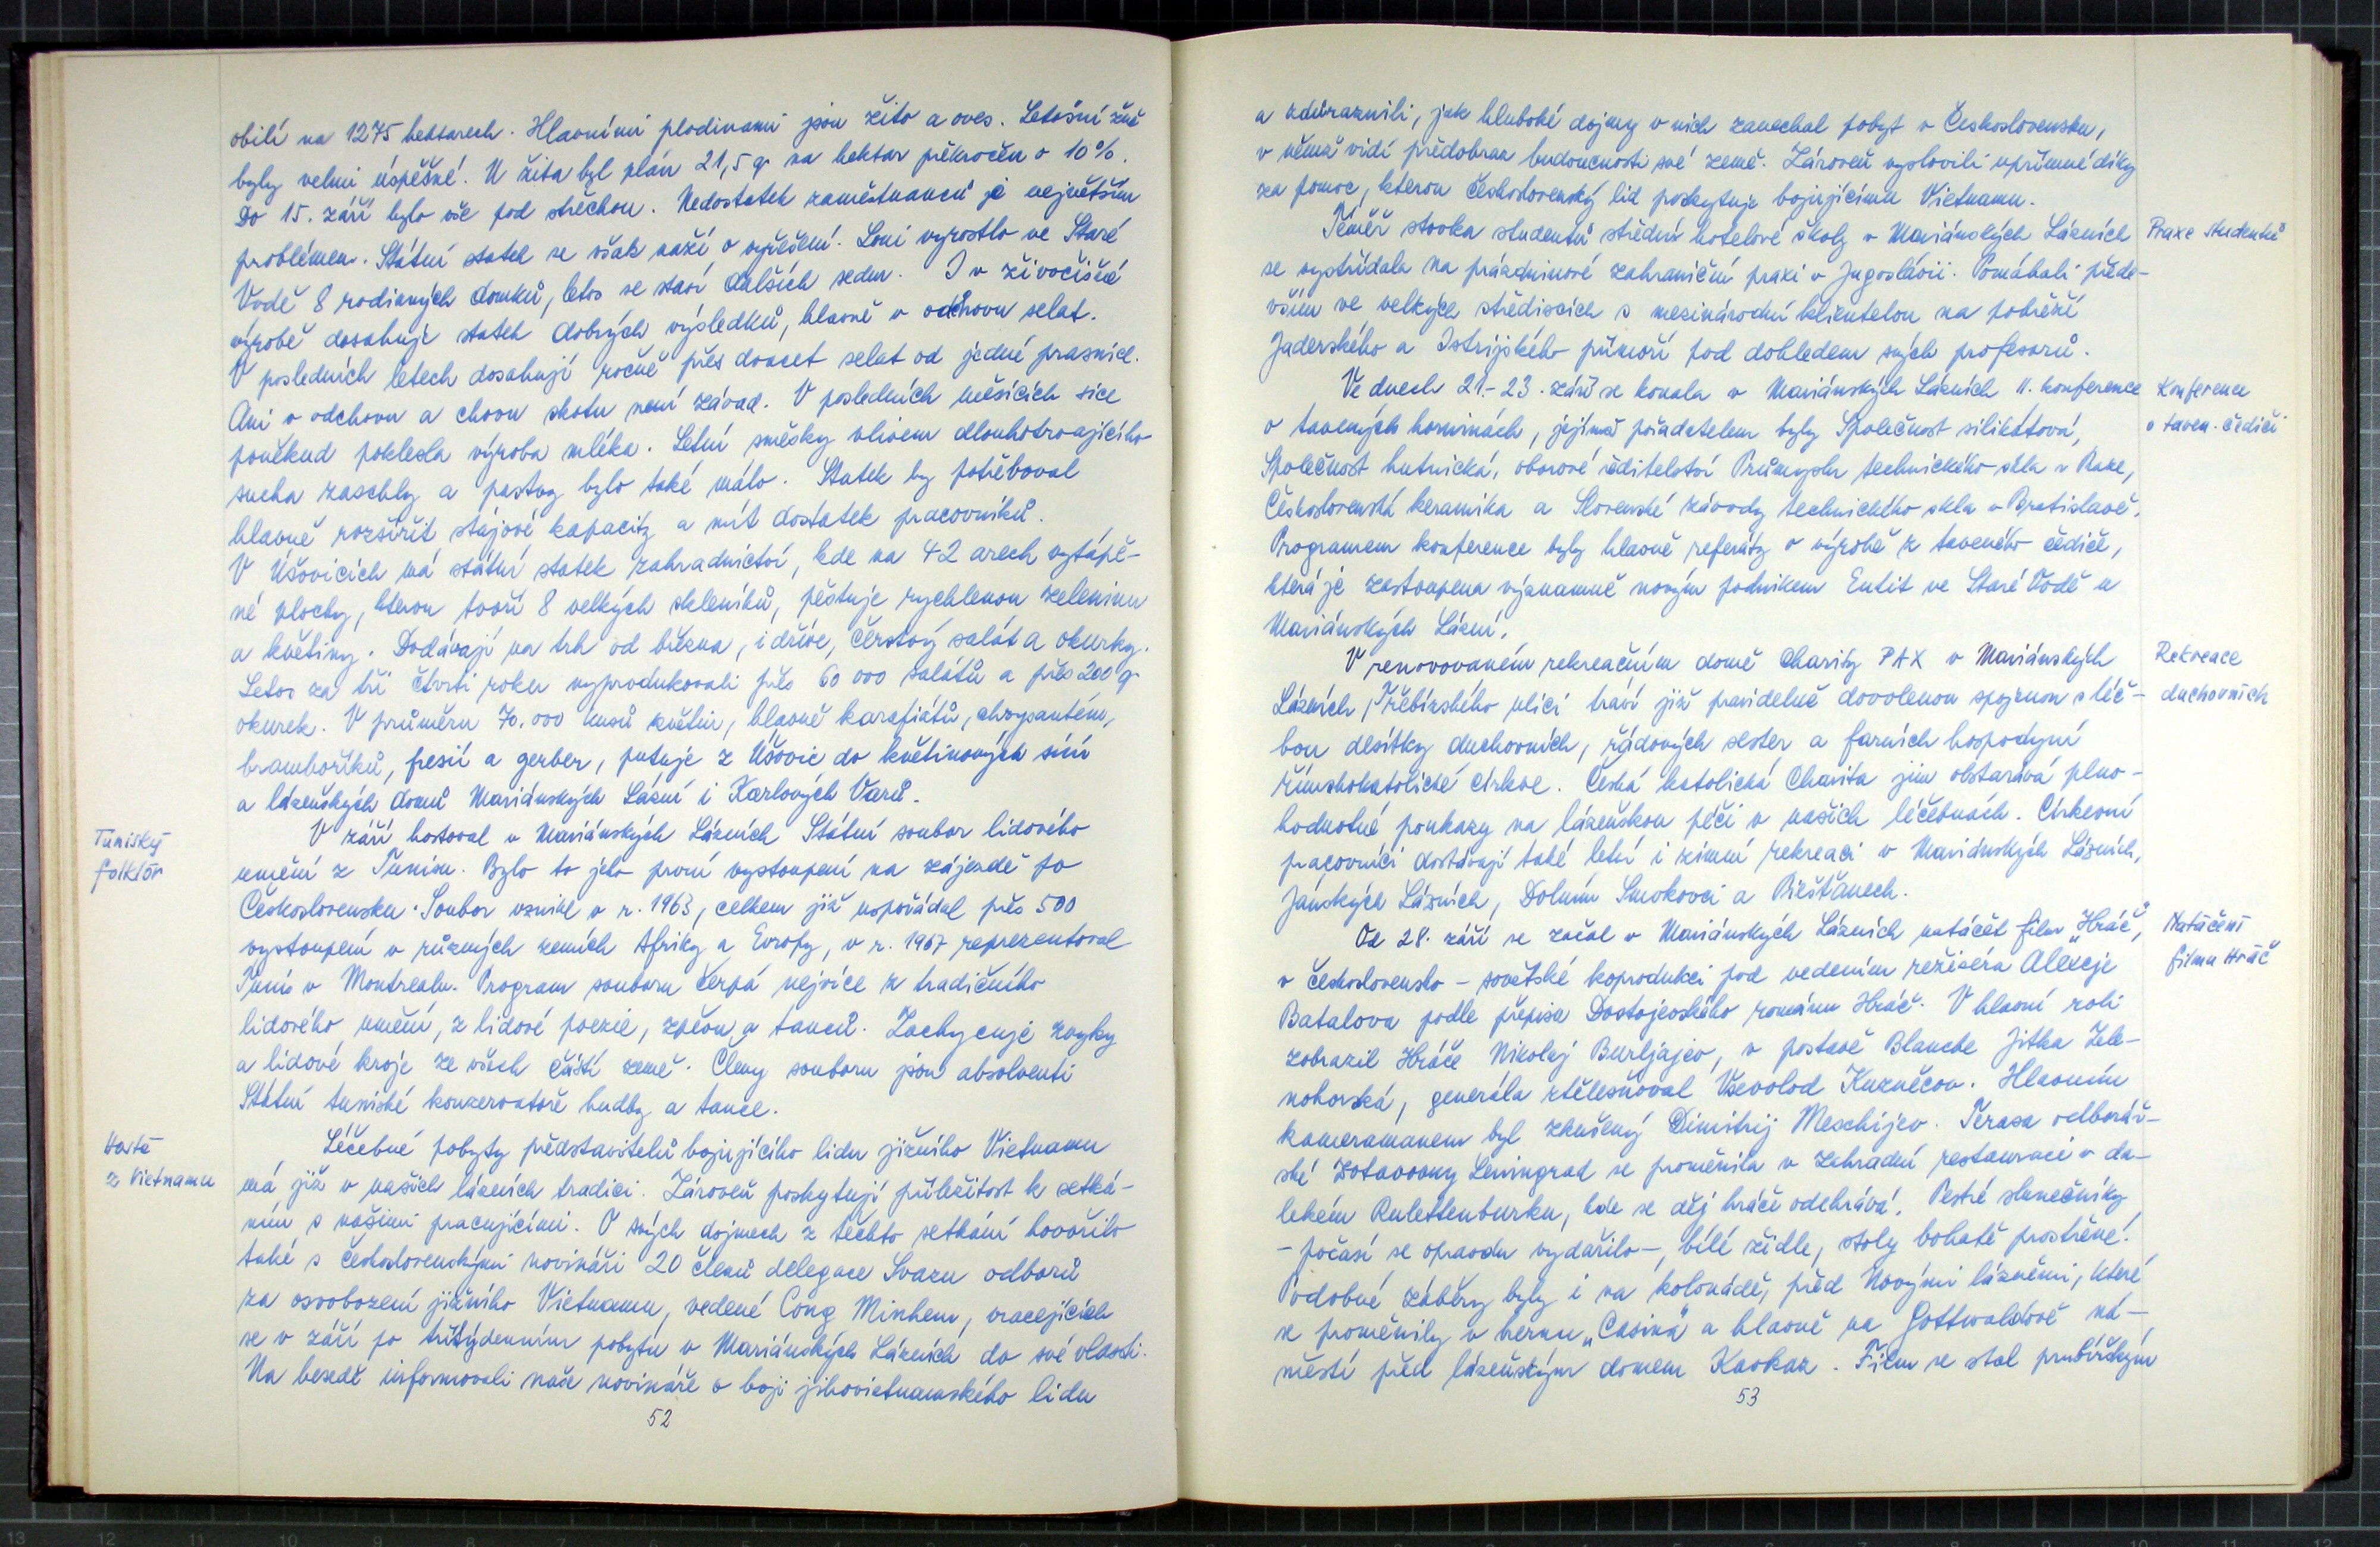 obilí na 1275 hektarech. Hlavními plodinami jsou žito a oves. Letošní žně
byly velmi úspěšné. U žita byl plán 21,5 q na hektar překročen o 10%.
Do 15. září bylo vše pod střechou. Nedostatek zaměstnanců je největším
problémem. Státní statek se však snaží o vyřešení. Loni vyrostlo ve Staré
Vodě 8 rodinných domků, letos se staví dalších sedm. I v živočišné
výrobě dosahuje statek dobrých výsledků, hlavně v odchovu selat.
V posledních letech dosahují ročně přes dvacet selat od jedné prasnice.
Ani v odchovu a chovu skotu není závad. V posledních měsících sice
poněkud poklesla výroba mléka. Letní směsky vlivem dlouhotrvajícího
sucha zaschly a pastvy bylo také málo. Statek by potřeboval
hlavně rozšířit stájové kapacity a mít dostatek pracovníků.
V Úšovicích má státní statek zahradnictví, kde na 42 arech vytápě-
né plochy, kterou tvoří 8 velkých skleníků, pěstuje rychlenou zeleninu
a květiny. Dodávají na trh od března, i dříve, čerstvý salát a okurky.
Letos za tři čtvrti roku vyprodukovali přes 60 000 salátů a přes 200 q
okurek. V průměru 70.000 kusů květin, hlavně karafiátů, chryzantém,
bramboříků, fresií a gerber, putuje z Úšovic do květinových síní
a lázeňských domů Mariánských Lázní i Karlových Varů.
Tuniský
folklór
V září hostoval v Mariánských Lázních Státní soubor lidového
umění z Tunisu. Bylo to jeho první vystoupení na zájezdě po
Československu. Soubor vznikl v r. 1963, celkem již uspořádal přes 500
vystoupení v různých zemích Afriky a Evropy, v r. 1967 reprezentoval
Tunis v Montrealu. Program souboru čerpá nejvíce z tradičního
lidového umění, z lidové poezie, zpěvu a tanců. Zachycuje zvyky
a lidové kroje ze všech částí země. Členy souboru jsou absolventi
Státní tuniské konzervatoře hudby a tance.
Hosté
z Vietnamu
Léčebné pobyty představitelů bojujícího lidu jižního Vietnamu
má již v našich lázních tradici. Zároveň poskytují příležitost k setká-
ním s našimi pracujícími. O svých dojmech z těchto setkání hovořilo
také s československými novináři 20 členů delegace Svazu odborů
za osvobození jižního Vietnamu, vedené Cong Minhem, vracejících
se v září po třítýdenním pobytu v Mariánských Lázních do své vlasti.
Na besedě informovali naše novináře o boji jihovietnamského lidu
52
a zdůraznili, jak hluboké dojmy v nich zanechal pobyt v Československu,
v němž vidí předobraz budoucnosti své země. Zároveň vyslovili upřímné díky
za pomoc, kterou československý lid poskytuje bojujícímu Vietnamu.
Praxe studentů
Téměř stovka studentů střední hotelové školy v Mariánských Lázních
se vystřídala na prázdninové zahraniční praxi v Jugoslávii. Pomáhali přede-
vším ve velkých střediscích s mezinárodní klientelou na pobřeží
Jaderského a Istrijského přímoří pod dohledem svých profesorů.
Konference
o taven. čediči
Ve dnech 21.-23. září se konala v Mariánských Lázních 11. konference
o tavených horninách, jejímž pořadatelem byly Společnost silikátová,
Společnost hutnická, oborové ředitelství Průmyslu technického skla v Praze,
Československá keramika a Slovenské závody technického skla v Bratislavě.
Programem konference byly hlavně referáty o výrobě z taveného čediče,
která je zastoupena významně novým podnikem Eutit ve Staré Vodě u
Mariánských Lázní.
Rekreace
duchovních
V renovovaném rekreačním domě Charity PAX v Mariánských
Lázních, Třebízského ulici tráví již pravidelně dovolenou spojenou s léč-
bou desítky duchovních, řádových sester a farních hospodyní
římskokatolické církve. Česká katolická Charita jim obstarává plno-
hodnotné poukazy na lázeňskou péči v našich léčebnách. Církevní
pracovníci dostávají také letní i zimní rekreaci v Mariánských Lázních,
Jánských Lázních, Dolním Smokovci a Piešťanech.
Natáčení
filmu Hráč
Od 28. září se začal v Mariánských Lázních natáčet film „Hráč",
v československo - sovětské koprodukci pod vedením režiséra Alexeje
Batalova podle přepisu Dostojevského románu Hráč. V hlavní roli
zobrazil Hráče Nikolaj Burljajev, v postavě Blanche Jitka Zele-
nohorská, generála ztělesňoval Vsevolod Kuzněcov. Hlavním
kameramanem byl zkušený Dimitrij Meschijev. Terasa odborář-
ské zotavovny Leningrad se proměnila v zahradní restauraci v da-
lekém Rulettenburku, kde se děj hráče odehrává. Pestré slunečníky
- počasí se opravdu vydařilo -, bílé židle, stoly bohatě prostřené.
Podobné záběry byly i na kolonádě, před Novými lázněmi, které
se proměnily v hernu „Casina" a hlavně na Gottwaldově ná-
městí před lázeňským domem Kavkaz. Film se stal prubířským
53